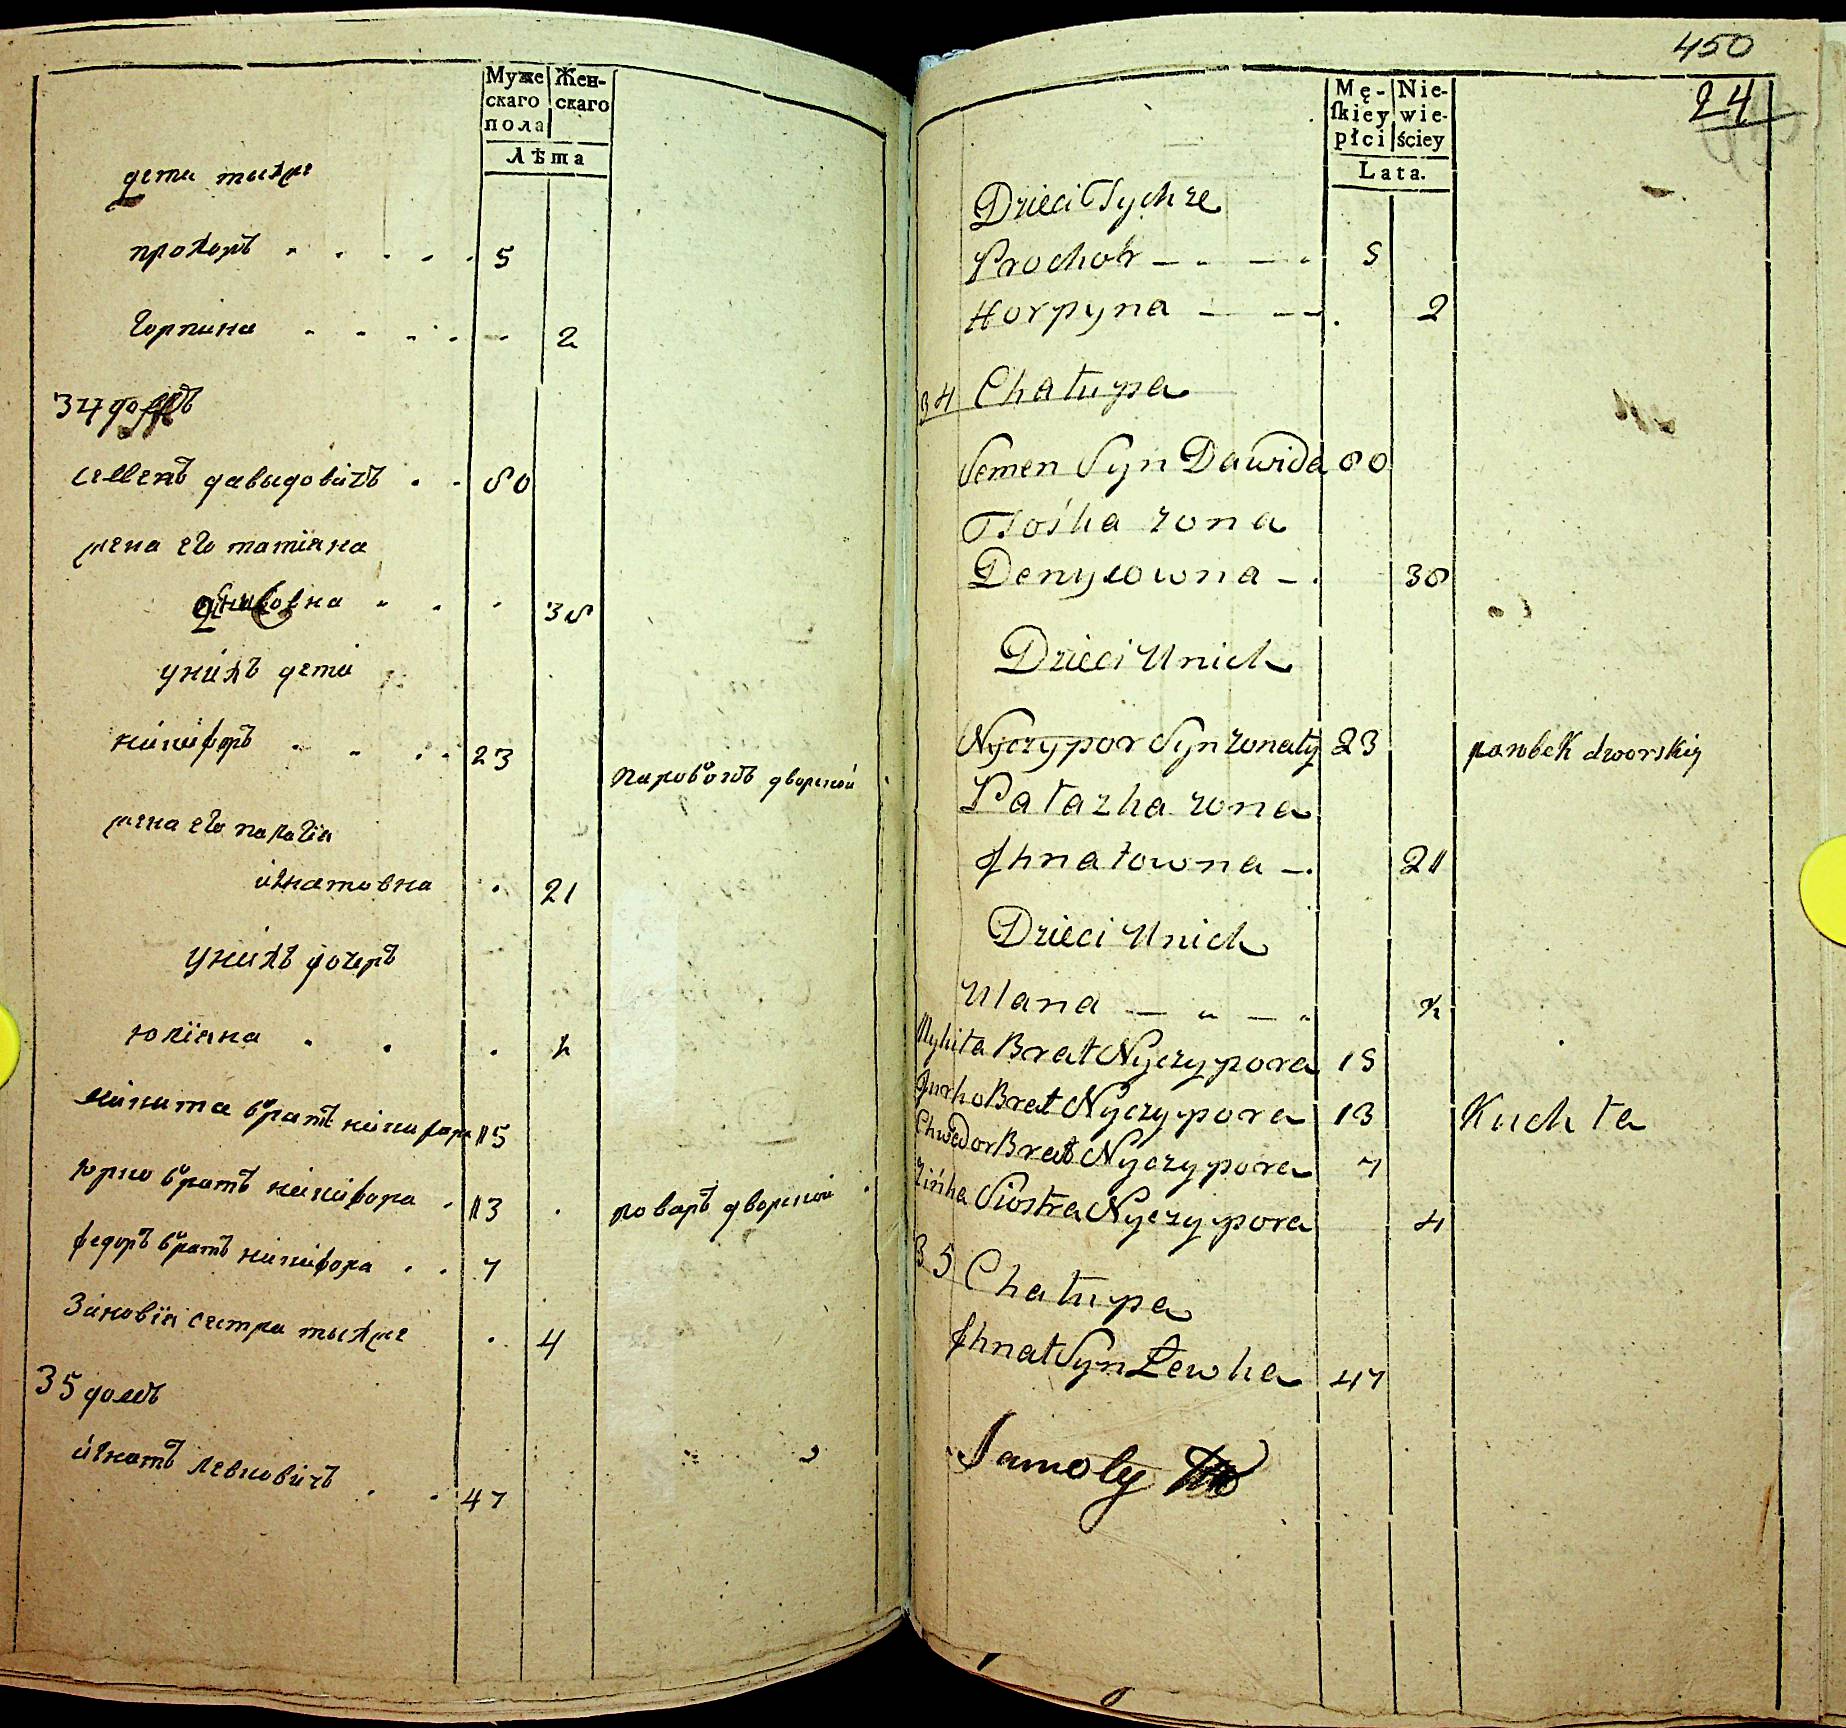 Муже Жен-
скаго скаго
пола
Лѣта
дети тыхже
прохоръ 5
Горпина 2
34 домъ
семенъ давыдовичъ 80
жена его татіяна
38
у нихъ дети
никифоръ 23
паробокъ дворской
жена его палагія
игнатовна 21
у нихъ дочеръ
юліяна ½
микита братъ никифора 15
юрко братъ никифора 13 поваръ дворской
федоръ братъ никифора 7
Зиновія сестра тыхже 4
35 домъ
игнатъ левковичъ 47
450
24
Mę- Nie-
ſkiey wie-
płci ściey
Lata.
Dzieci Tychże
Prochor 5
Horpyna 2
34 Chałupa
Semen Syn Dawida 80
Tośka żona
Denysowna 38
Dzieci Unich
Nyczypor Syn żonaty 23 parobek dworskiy
Pałazka żona
Ihnatowna 21
Dzieci Unich
Ulana ½
Mykita Brat Nyczypora 15
Jurko Brat Nyczypora 13 Kuchta
Chwedor Brat Nyczypora 7
Zińka Siostra Nyczypora 4
35 Chałupa
Ihnat Syn Łewka 47